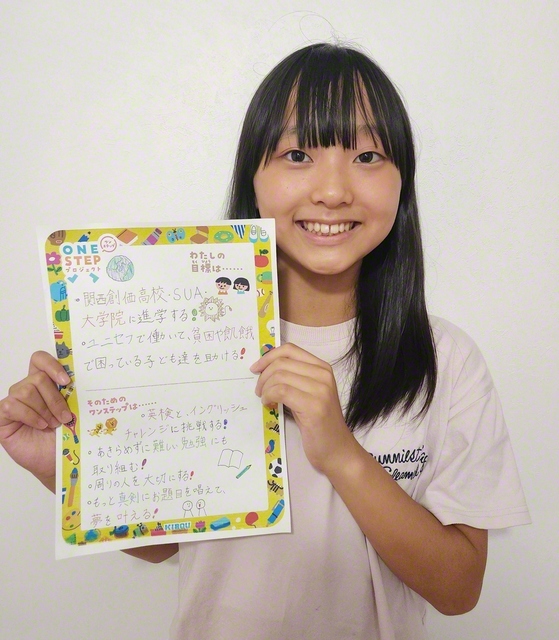 ONE
STEP
プロジェクト
わたしの
目標は……
・関西創価高校・SUA・
大学院に進学する!
・ユニセフで働いて、貧困や飢餓
で困っている子ども達を助ける!
そのための
ワンステップは……
・英検と、イングリッシュ
チャレンジに挑戦する!
・あきらめずに難しい勉強にも
取り組む!
・周りの人を大切にする!
・もっと真剣にお題目を唱えて、
夢を叶える!
KIBOU